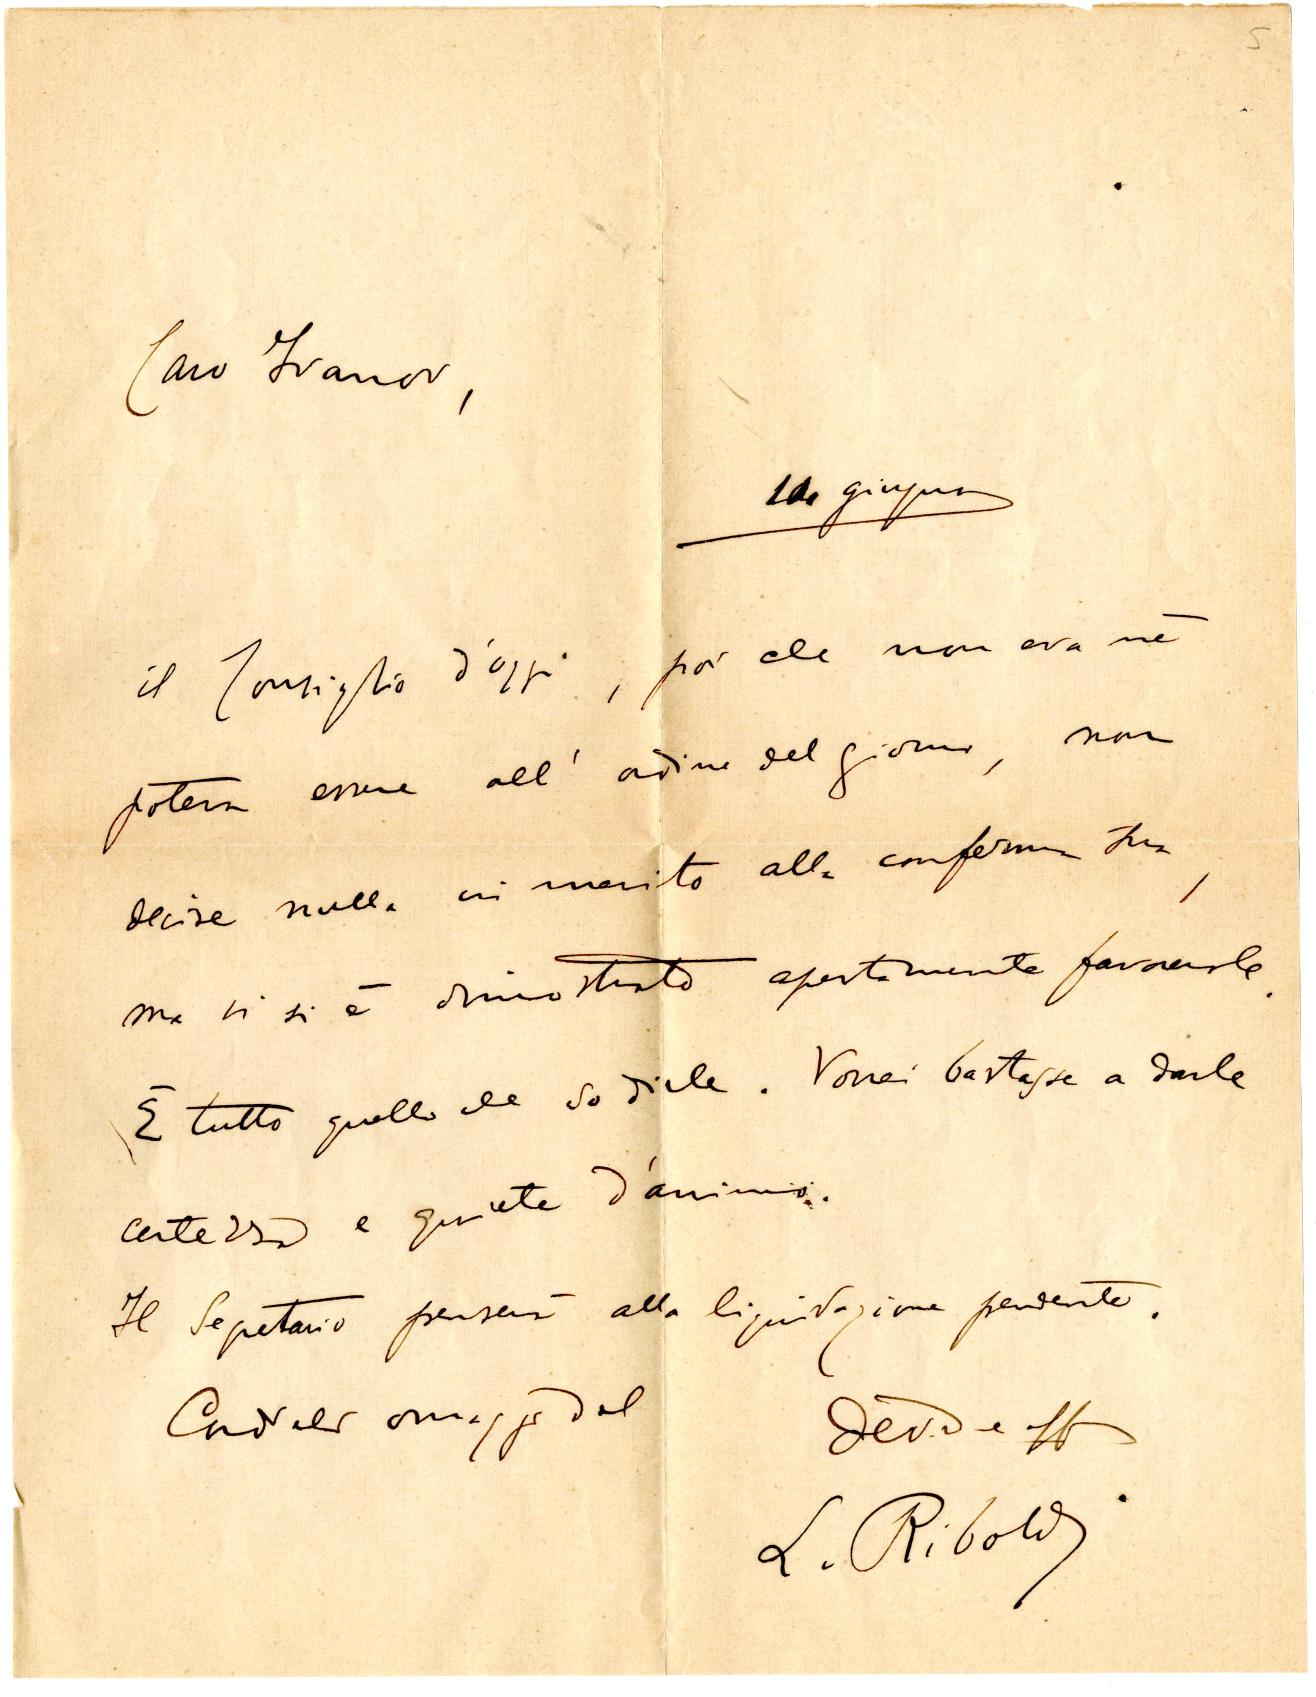 5
Caro Ivanov,
giugno
il Consiglio d'oggi, poi che non era nè
poteva essere all'ordine del giorno, non
decise nulla in merito alla conferma Sua,
ma vi si è dimostrato apertamente favorevole.
È tutto quello che so dirle. Vorrei bastasse a darle
certezza e quiete d'animo.
Il Segretario penserà alla liquidazione pendente.
Cordiali omaggi dal
dev. e aff
L. Riboldi